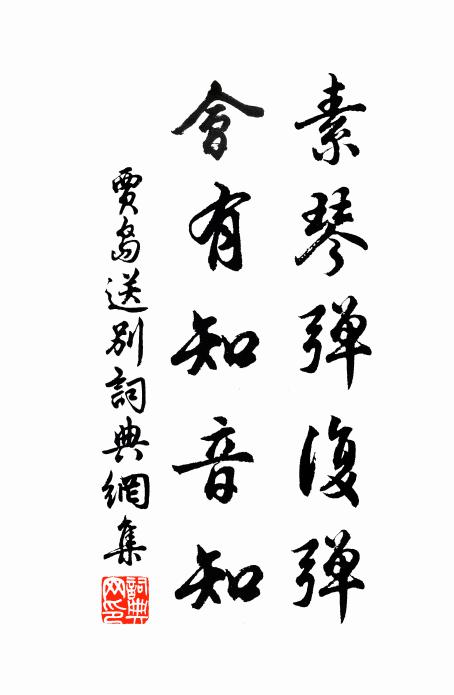 素琴弹復弹
會有知音知
賈島送别詞典網集
詞典網印